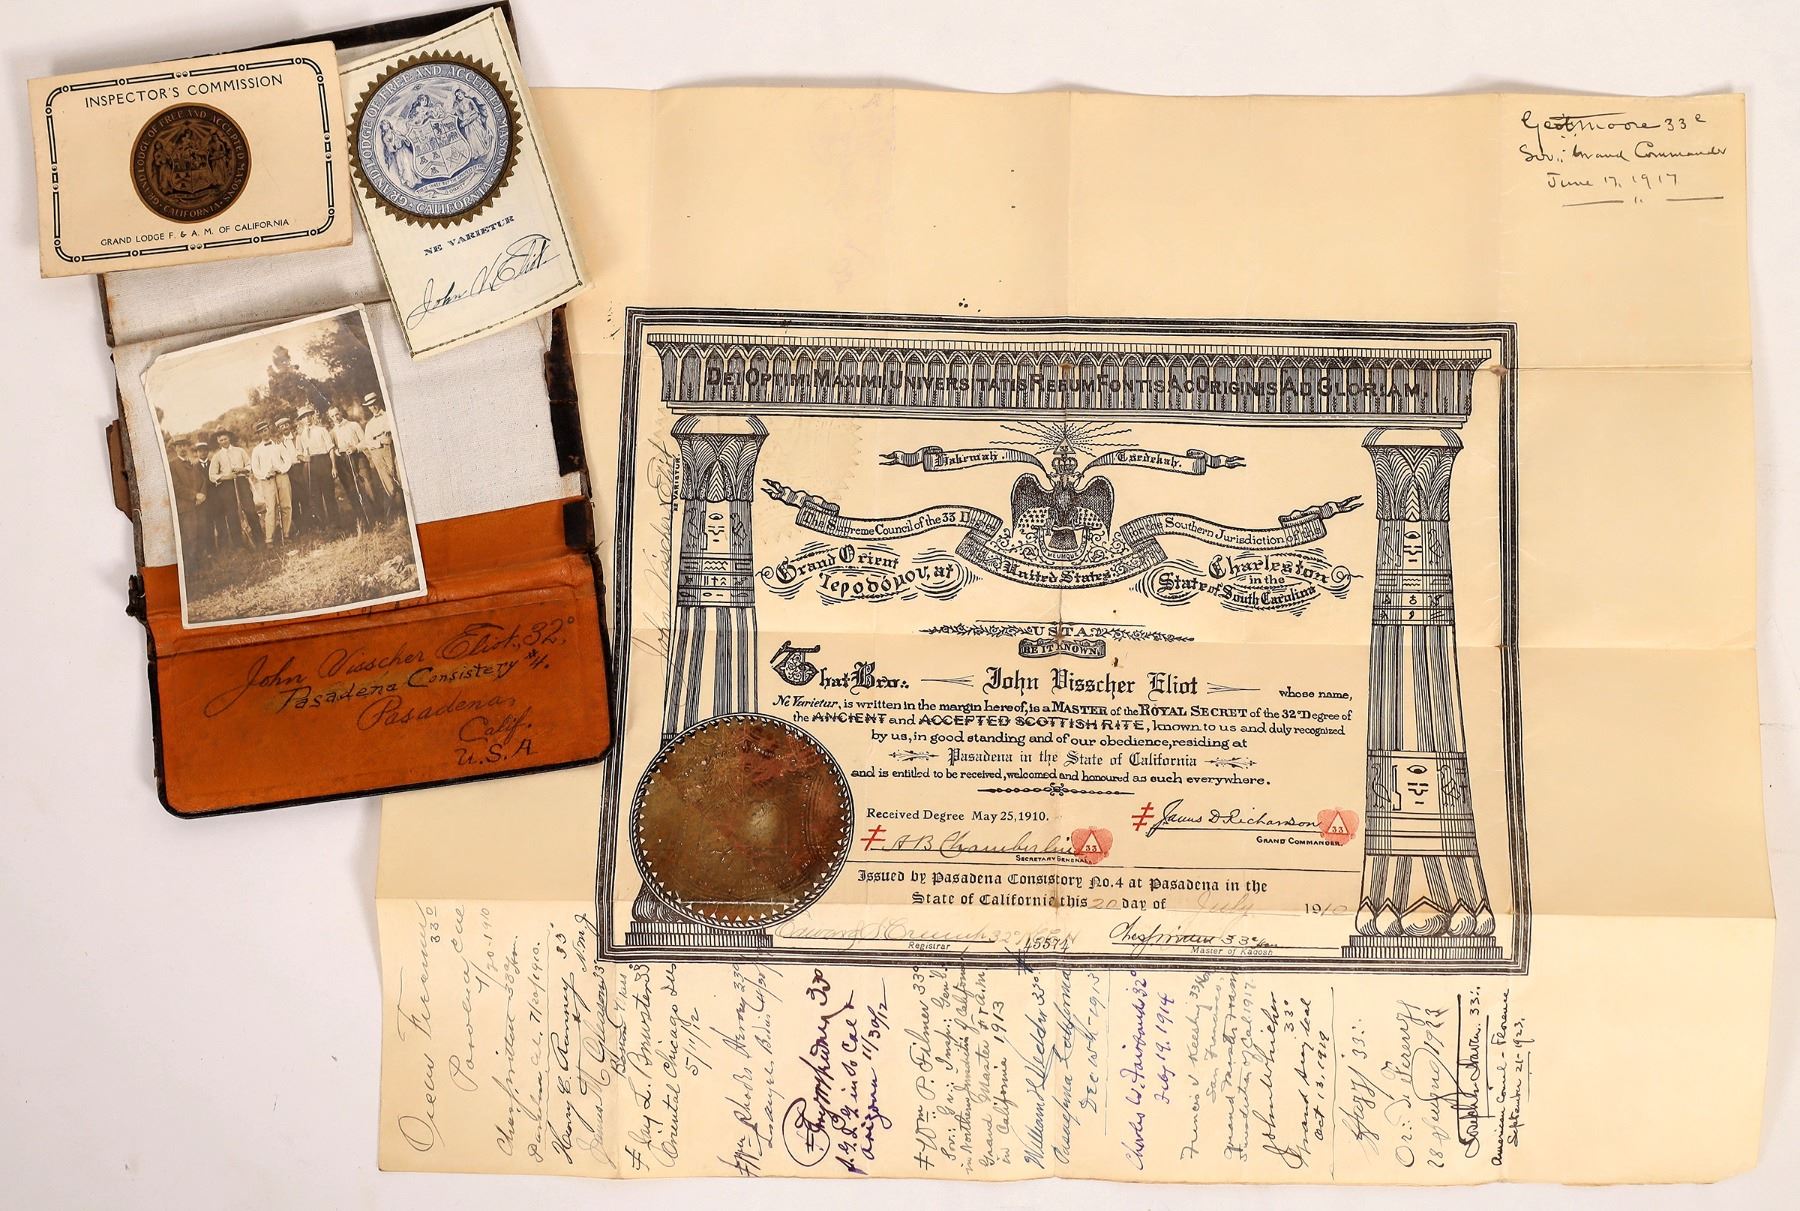 INSPECTOR'S COMMISSION
GRAND LODGE OF FREE AND ACCEPTED MASONS
CALIFORNIA
GRAND LODGE F. & A. M. OF CALIFORNIA
GRAND LODGE OF FREE AND ACCEPTED MASONS
CALIFORNIA
NE VARIETUR
John V. Eliot
John Visscher Eliot, 32°
Pasadena Consistery #4.
Pasadena,
Calif.
U.S.A
Geo F Moore 33°
Sov∴ Grand Commander
June 17, 1917
DEI OPTIMI MAXIMI, UNIVERSITATIS RERUM FONTIS AC ORIGINIS AD GLORIAM.
Hakemah.
Tsedekah.
The Supreme Council of the 33 Degree
for the Southern Jurisdiction of the
United States.
Grand Orient
Ιεροδόμου, at
Charleston
in the
State of South Carolina
NE VARIETUR
John Visscher Eliot
BE IT KNOWN.
That Bro∴ John Visscher Eliot whose name,
Ne Varietur, is written in the margin hereof, is a MASTER of the ROYAL SECRET of the 32° Degree of
the ANCIENT and ACCEPTED SCOTTISH RITE, known to us and duly recognized
by us, in good standing and of our obedience, residing at
Pasadena in the State of California
and is entitled to be received, welcomed and honoured as such everywhere.
Received Degree May 25, 1910.
James D Richardson
33
GRAND COMMANDER.
A B Chamberlin
33
SECRETARY GENERAL.
Issued by Pasadena Consistory No. 4 at Pasadena in the
State of California this 20 day of July 1910
Registrar
15574
Master of Kadosh
33°
7/20 1910
Pasadena Cal. 7/20/1910.
Henry C. Ranney 33°
Jay L. Brewster 33°
Oriental Chicago Ills
5/11/12
Wm Rhodes Hervey 33°
33°
S.G.I.G in So Cal &
Arizona 11/30/12
Wm P. Filmer 33°
Sov∴ Gr∴ Insp∴ Gen'l
in Northern Jurisdictn of California
Grand Master F & A M
in California 1913
Pasadena California
Dec 10th - 1913
Charles W. Fairbanks 32°
Feby 19. 1914
Francis J Keesling 33°
San Francisco.
Grand Master Masons
Jurisdiction of Cal 1917.
33°
Oct 13, 1919
33∴
28 1923
33∴
American Consul - Florence
September 21 - 1923.